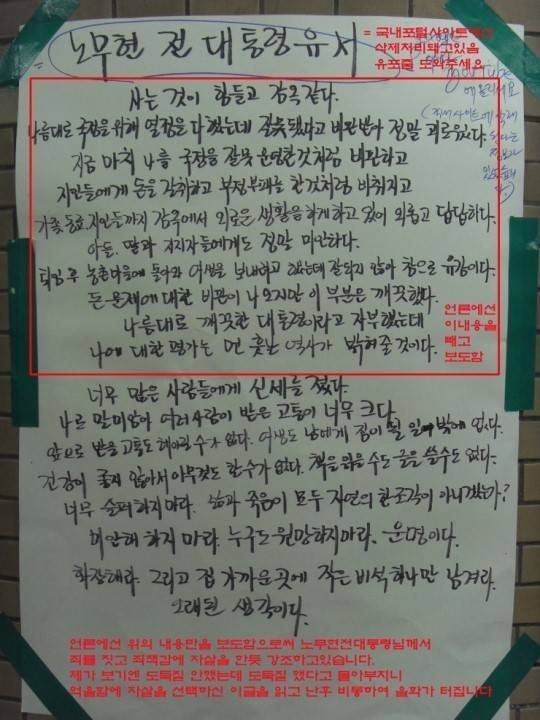 노무현 전 대통령 유서
= 국내포털사이트에선
삭제처리돼고있음
유포좀 도와주세요
youTube
에 올리세요
사는 것이 힘들고 감옥같다.
나름대로 국정을 위해 열정을 다했는데 잘못됐다고 비판받아 정말 괴로웠다.
지금 마치 나를 국정을 잘못 운영한것처럼 비판하고
지인들에게 돈을 갈취하고 부정부패를 한것처럼 비춰지고
가족 동료, 지인들까지 감옥에서 외로운 생활을 하게하고 있어 외롭고 답답하다.
아들, 딸과 지지자들에게도 정말 미안하다.
퇴임 후 농촌마을에 돌아와 여생을 보내려고 했는데 잘되지 않아 참으로 유감이다.
돈 문제에 대한 비판이 나오지만 이 부분은 깨끗했다.
나름대로 깨끗한 대통령이라고 자부했는데
나에 대한 평가는 먼 훗날 역사가 밝혀줄 것이다.
언론에선
이내용을
빼고
보도함
너무 많은 사람들에게 신세를 졌다.
나로 말미암아 여러사람이 받은 고통이 너무 크다.
앞으로 받을 고통도 헤아릴 수가 없다. 여생도 남에게 짐이 될 일 밖에 없다.
건강이 좋지 않아서 아무것도 할 수가 없다. 책을 읽을 수도 글을 쓸 수도 없다.
너무 슬퍼하지 마라. 삶과 죽음이 모두 자연의 한조각이 아니겠는가?
미안해 하지 마라. 누구도 원망하지마라. 운명이다.
화장해라. 그리고 집 가까운 곳에 작은 비석 하나만 남겨라.
오래된 생각이다.
언론에선 위의 내용만을 보도함으로써 노무현전대통령님께서
죄를 짓고 죄책감에 자살을 한듯 강조하고있습니다.
제가 보기엔 도둑질 안했는데 도둑질 했다고 몰아부치니
억울함에 자살을 선택하신 이글을 읽고 난후 비통하여 울화가 터집니다